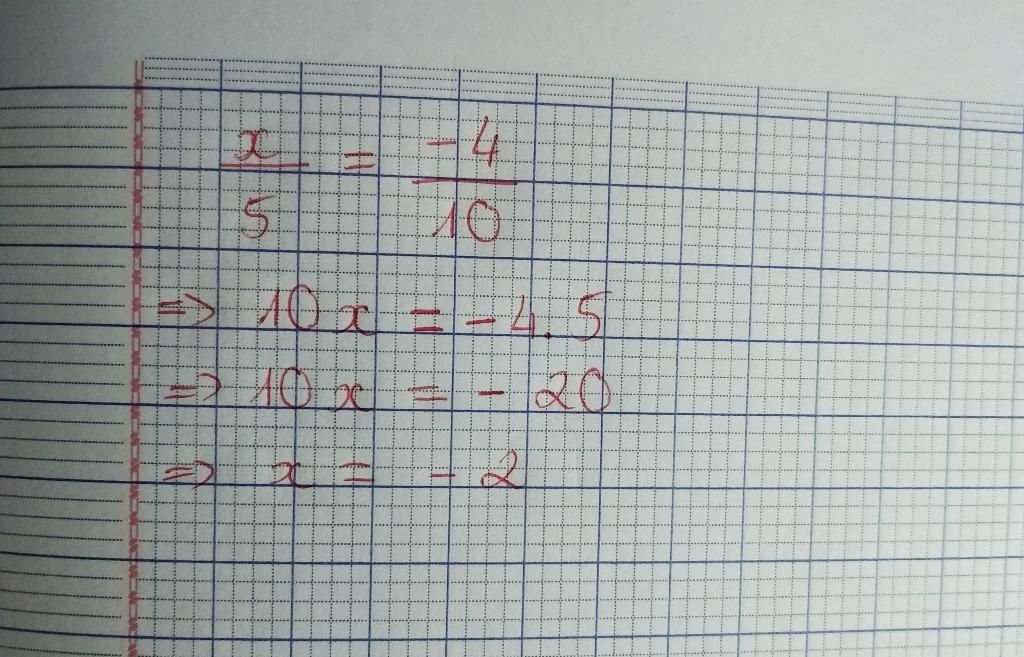 x/5 = -4/10
=> 10x = -4.5
=> 10x = -20
=> x = -2